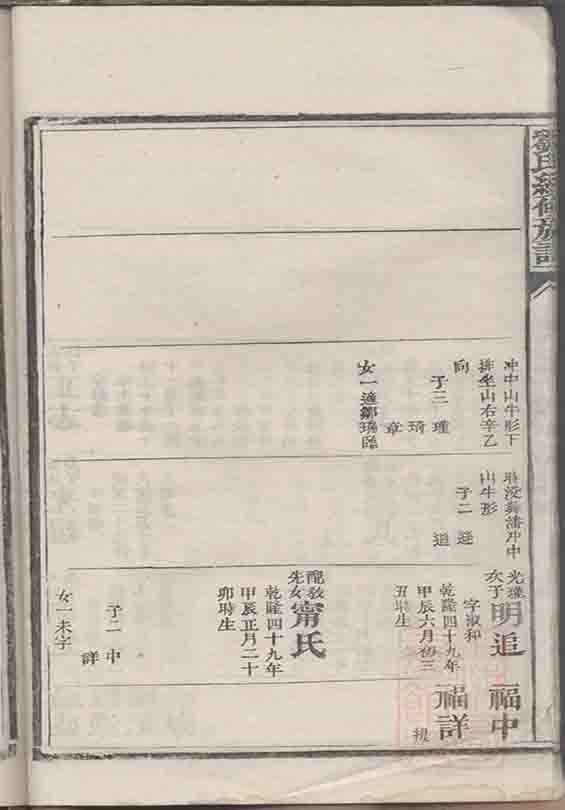 劉氏續修族譜
冲中山牛形下
排坐山右辛乙
向
子三 瑾
琦
章
女一適鄒瑞臨
時没葬潘冲中
山牛形
子二 廷
追
光瓅次子
明追
字淑和
乾隆四十九年
甲辰六月初三
丑時生
配敎先女
甯氏
乾隆四十九年
甲辰正月二十
卯時生
子二 中
詳
女一未字
福中
福詳